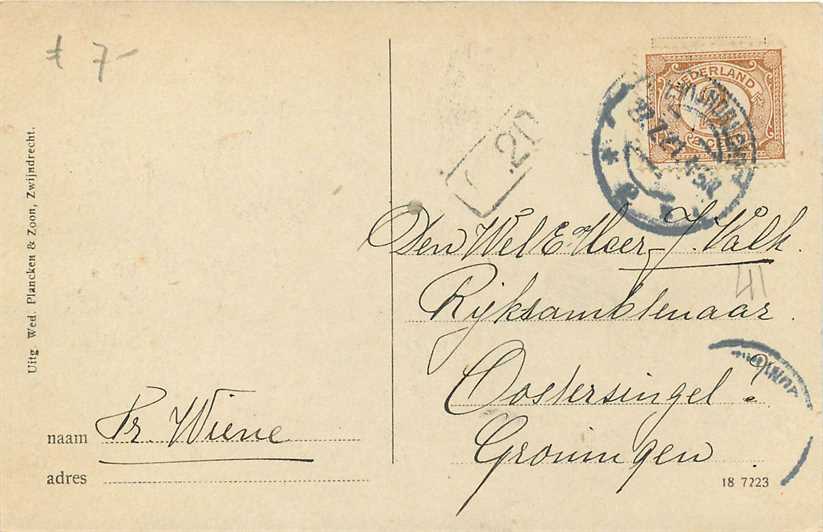 ƒ 7-
Uitg Wed. Plancken & Zoon, Zwijndrecht.
20
NEDERLAND
2 CENT
Den Wel E. Heer J. Valk.
41
Rijksambtenaar
Oostersingel ?
Groningen
naam Fr. Wiene
adres
18 7223